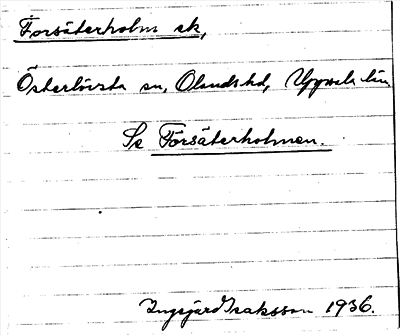 Forsäterholm sk,
Österlövsta sn, Olands hd, Uppsala län
Se Försäterholmen.
Ingegärd Isaksson 1936.